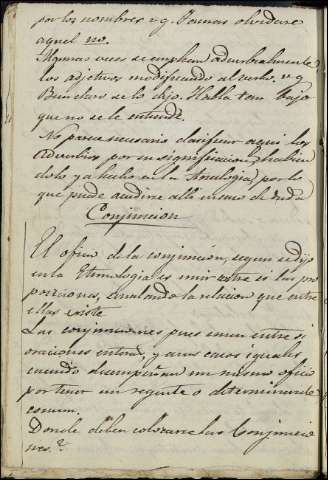 por los nombres v.g. Jamas olvidare
aquel no.
Algunas veces se emplean adverbialmente
los adjetivos modificando al verbo. v.g
Bien claro se lo dijo. Habla tan bajo
que no se le entiende.
No parece necesario clasificar aqui los
adverbios por su significacion, habien
dolo ya hecho en la Analogia, por lo
que puede acudirse alli en caso de duda
Conjuncion
El oficio de la conjuncion, segun se dijo
en la Etimologia es unir entre si las pro
posiciones, enunlando la relacion que entre
ellas existe
Las conjunciones pues unen entre si
oraciones enteras, y aun casos iguales,
cuando desempeñan un mismo oficio
por tener un regente o determinante
comun.
Donde deben colocarse las Conjuncio
nes.?